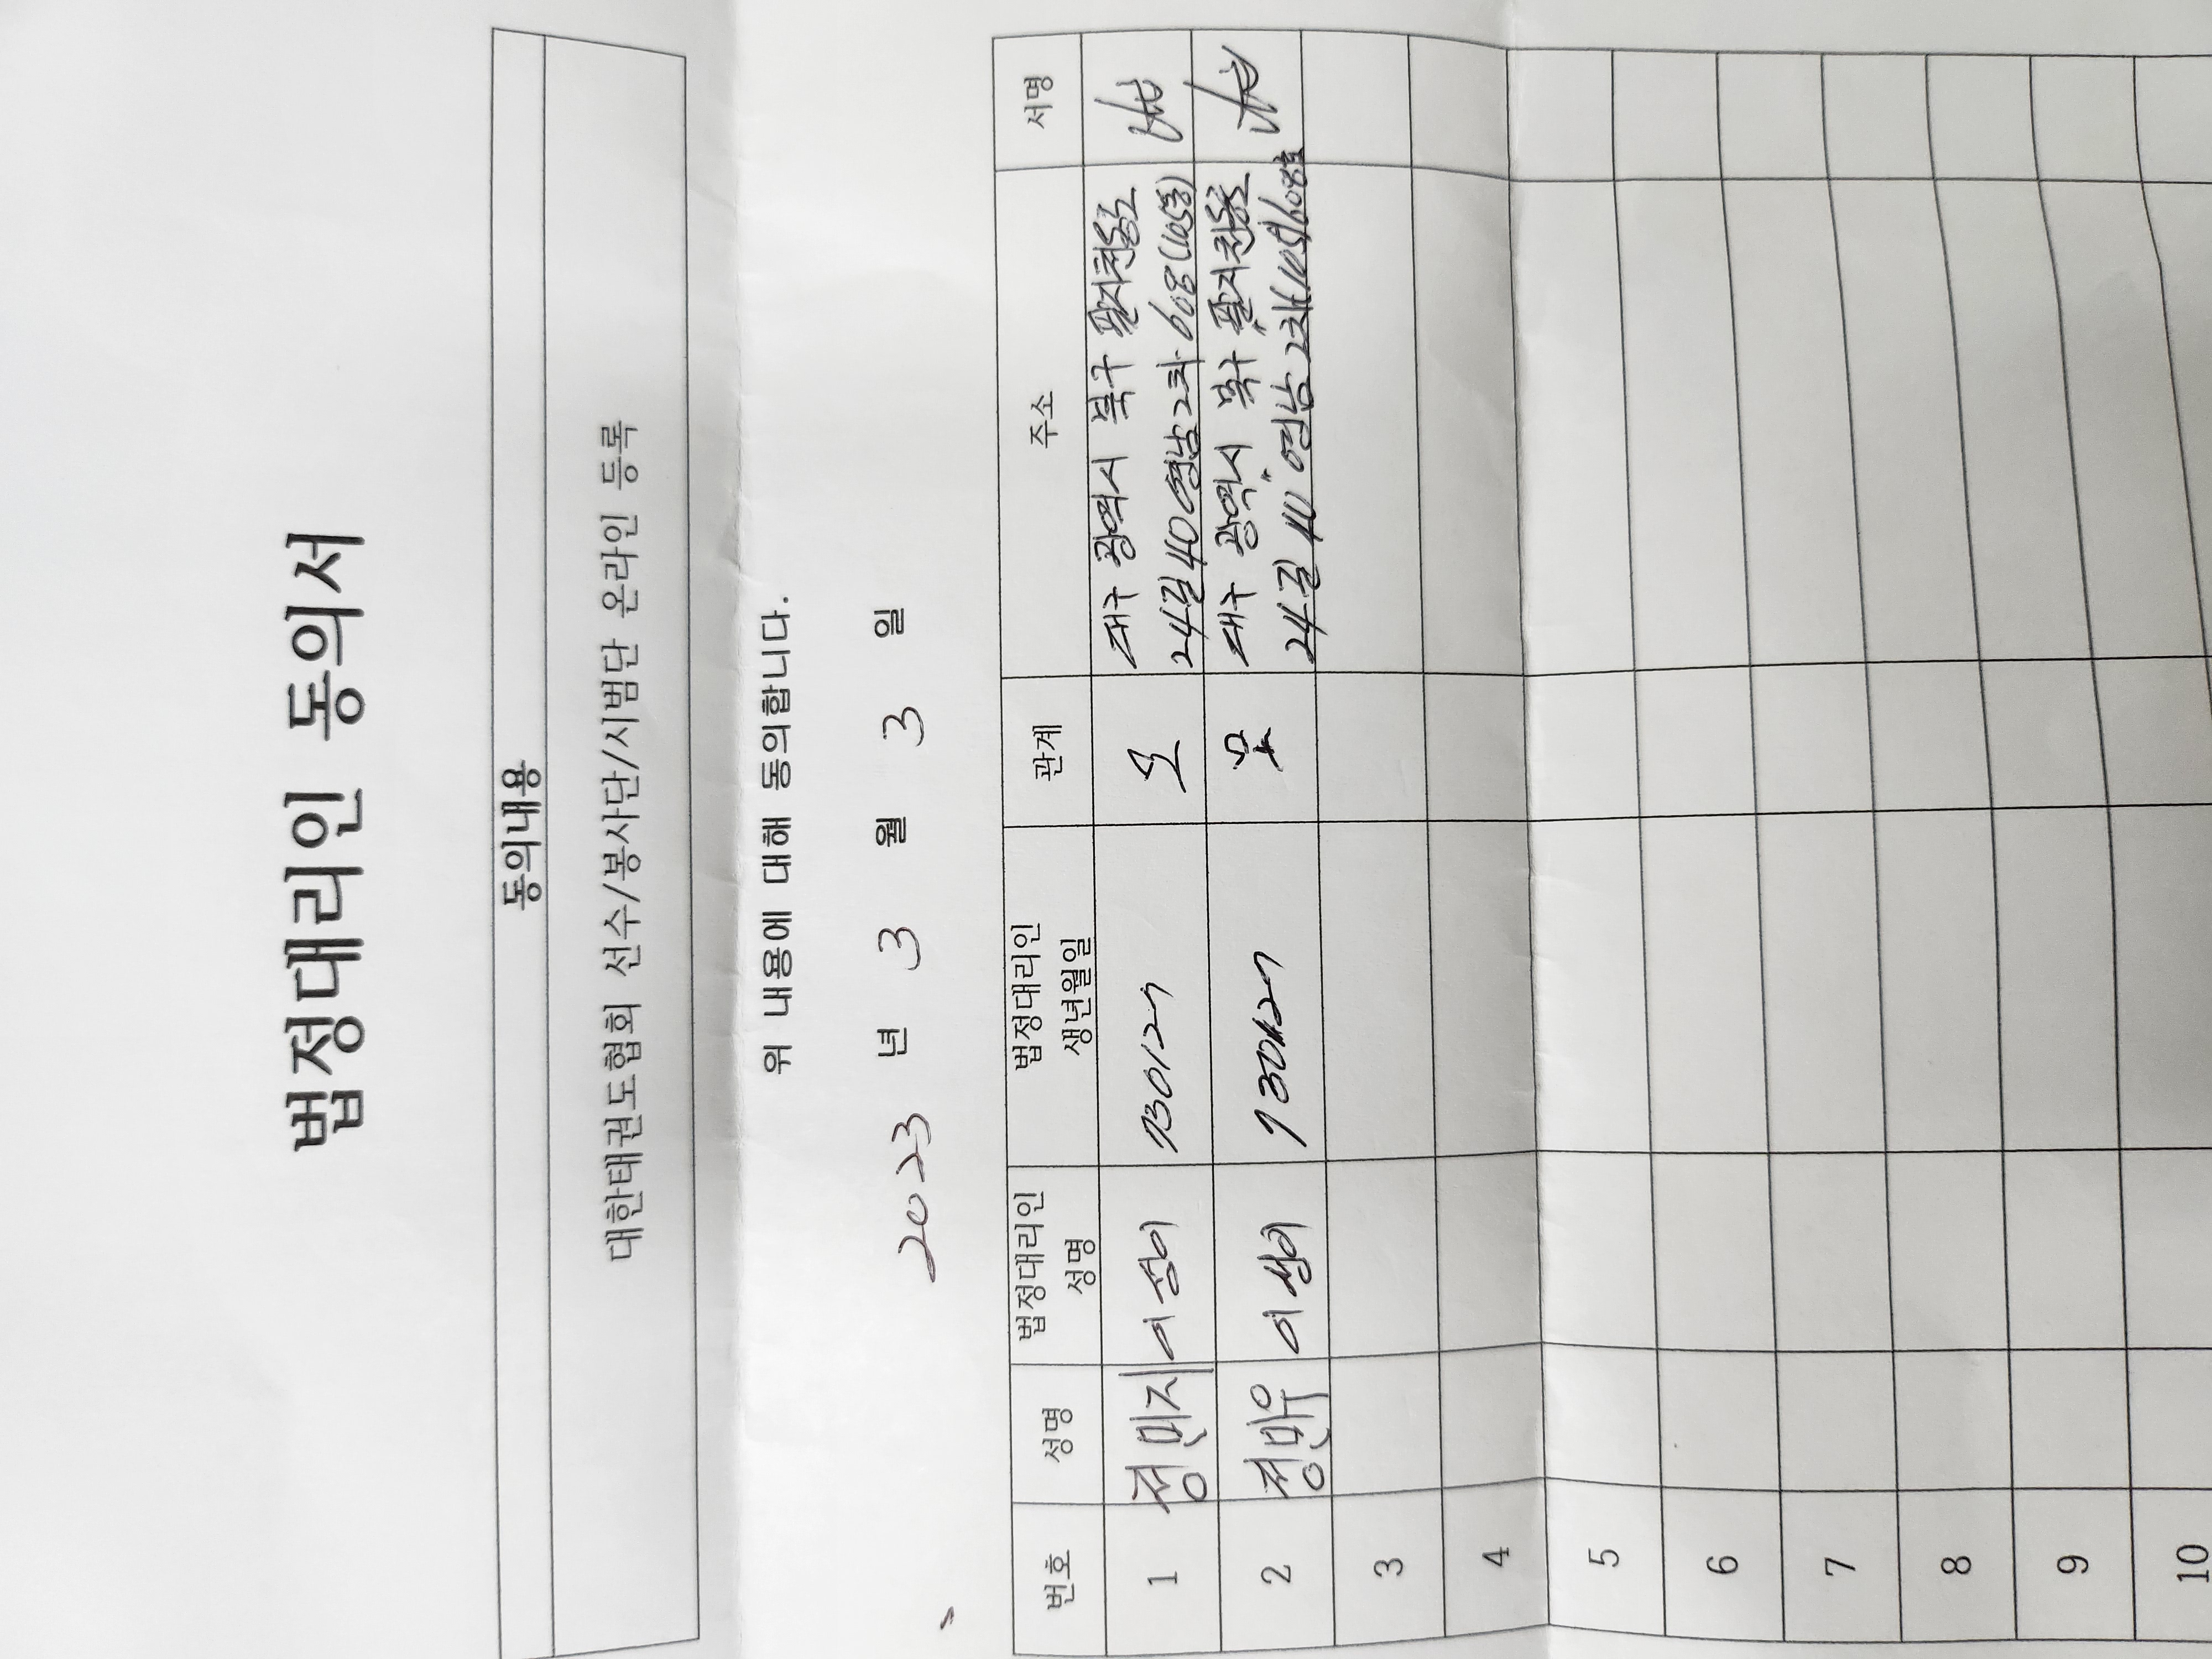 법정대리인 동의서
동의내용
대한태권도협회 선수/봉사단/시범단 온라인 등록
위 내용에 대해 동의합니다.
2023 년 3 월 3 일
번호 성명 법정대리인 성명 법정대리인 생년월일 관계 주소 서명
1 정민지 이성이 730127 모 대구 광역시 북구 팔거천동로
24길 40 영남2차 608(105동)
2 정민우 이성이 730127 모 대구 광역시 북구 팔거천동로
24길 40 영남2차 105동 608호
3
4
5
6
7
8
9
10